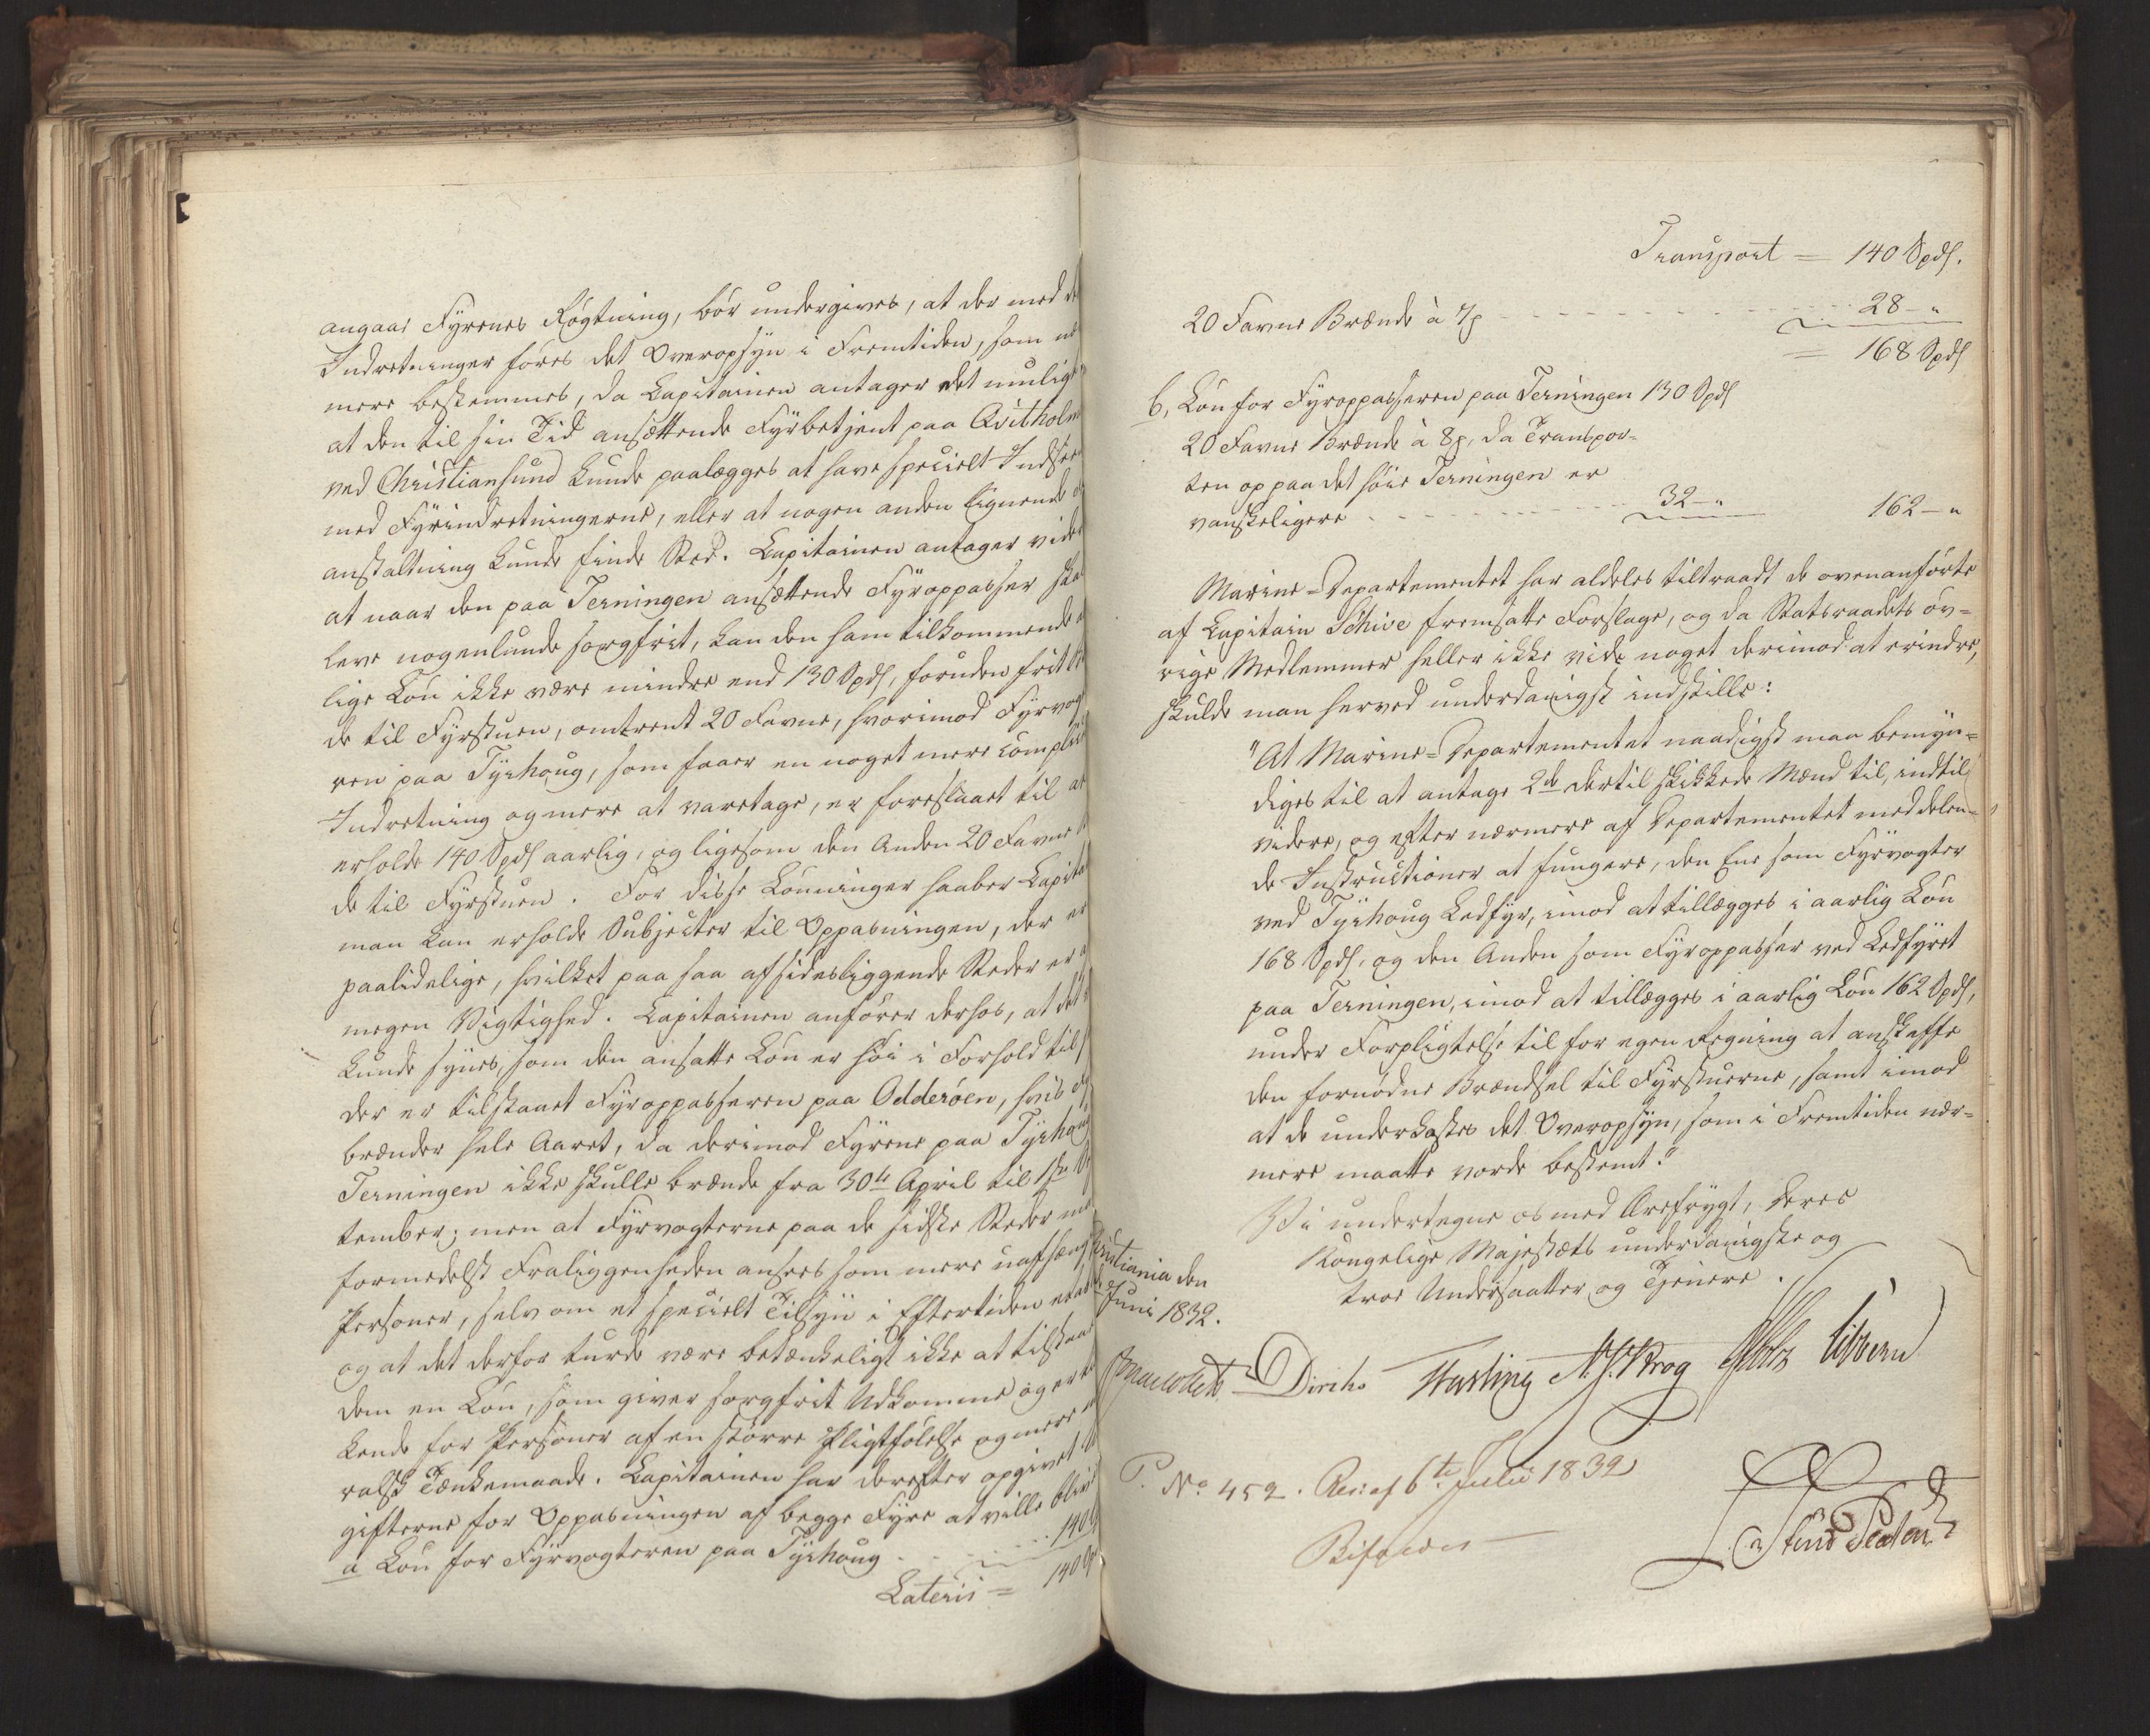 angaar Fyrenes Røgtning, bør undergives, at der med
Indretninger føres det Overopsyn i Fremtiden, som
mere bestemmes, da Capitainen antager det
at den til sin Tid ansættende Fyrbetjent paa Qvitholm
ved Christiansund kunde paalægges at have specielt
med Fyrindretningerne, eller at nogen anden lignende
anstaltning kunde finde Sted. Capitainen antager
at naar den paa Terningen ansættende Fyropasser
leve nogenlunde sorgfrit, kan den ham tilkommende
lige Løn ikke være mindre end 130 Spd, foruden frit
de til Fyrstuen, omtrent 20 Favne, hvorimod
ren paa Tyrhoug, som faaer en noget mere
Indretning og mere at varetage, er foreslaaet til
erholde 140 Spd aarlig, og ligesom den Anden 20 Favne
de til Fyrstuen. For disse Lønninger haaber
man kan erholde Subjecter til Oppasningen, der er
paalidelige, hvilket paa saa afsidesliggende Steder er
megen Vigtighed. Capitainen anfører derhos, at det
kunde synes, som den ansatte Løn er høi i Forhold til
der er tilstaaet Fyropasseren paa Odderøen, hvis
brænder hele Aaret, da derimod Fyrene paa Tyrhoug
Terningen ikke skulle brænde fra 30te April til 1ste
tember; men at Fyrvogterne paa de sidste Steder
formedelst Fraliggenheden ansees som mere
Personer, selv om et specielt Tilsyn i Eftertiden
og at det derfor turde være betænkeligt ikke at
dem en Løn, som giver sorgfrit Udkomme og
kende for Personer af en større Pligtfølelse og mere
ralsk Tænkemaade. Capitainen har derefter opgivet
gifterne for Oppasningen af begge Fyre at ville
a Løn for Fyrvogteren paa Tyrhoug . . . 140
Lateris = 140
Transport = 140 Spd.
20 Favne Brænde à 7 - - - 28 - "
= 168 Spd
b, Løn for Fyroppasseren paa Terningen 130 Spd
20 Favne Brænde à 8, da Transpor-
ten op paa det høie Terningen er
vanskeligere - - - 32 - " 162 - "
Marine-Departementet har aldeles tiltraadt de ovenanførte
af Capitain Schive fremsatte Forslage, og da Statsraadets øv-
rige Medlemmer heller ikke vide noget derimod at erindre,
skulde man herved underdanigst indstille:
"At Marine-Departementet naadigst maa bemyn-
diges til at antage 2de dertil skikkede Mænd til, indtil
videre, og efter nærmere af Departementet meddelen-
de Instructioner at fungere, den Ene som Fyrvogter
ved Tyrhoug Ledfyr, imod at tillægges i aarlig Løn
168 Spd, og den Anden som Fyropasser ved Ledfyret
paa Terningen, imod at tillægges i aarlig Løn 162 Spd,
under Forpligtelse til for egen Regning at anskaffe
den fornødne Brændsel til Fyrstuerne, samt imod
at de underkastes det Overopsyn, som i Fremtiden nær-
mere maatte vorde bestemt."
Vi undertegne os med Ærefrygt, Deres
Kongelige Majestæts underdanigste og
troe Undersaatter og Tjenere.
Christiania den
Juni 1839.
Diriks Vasting N. J. Krog Holst Sibbern
P. No 452. Res: af 6te Julii 1839
Bifaldes